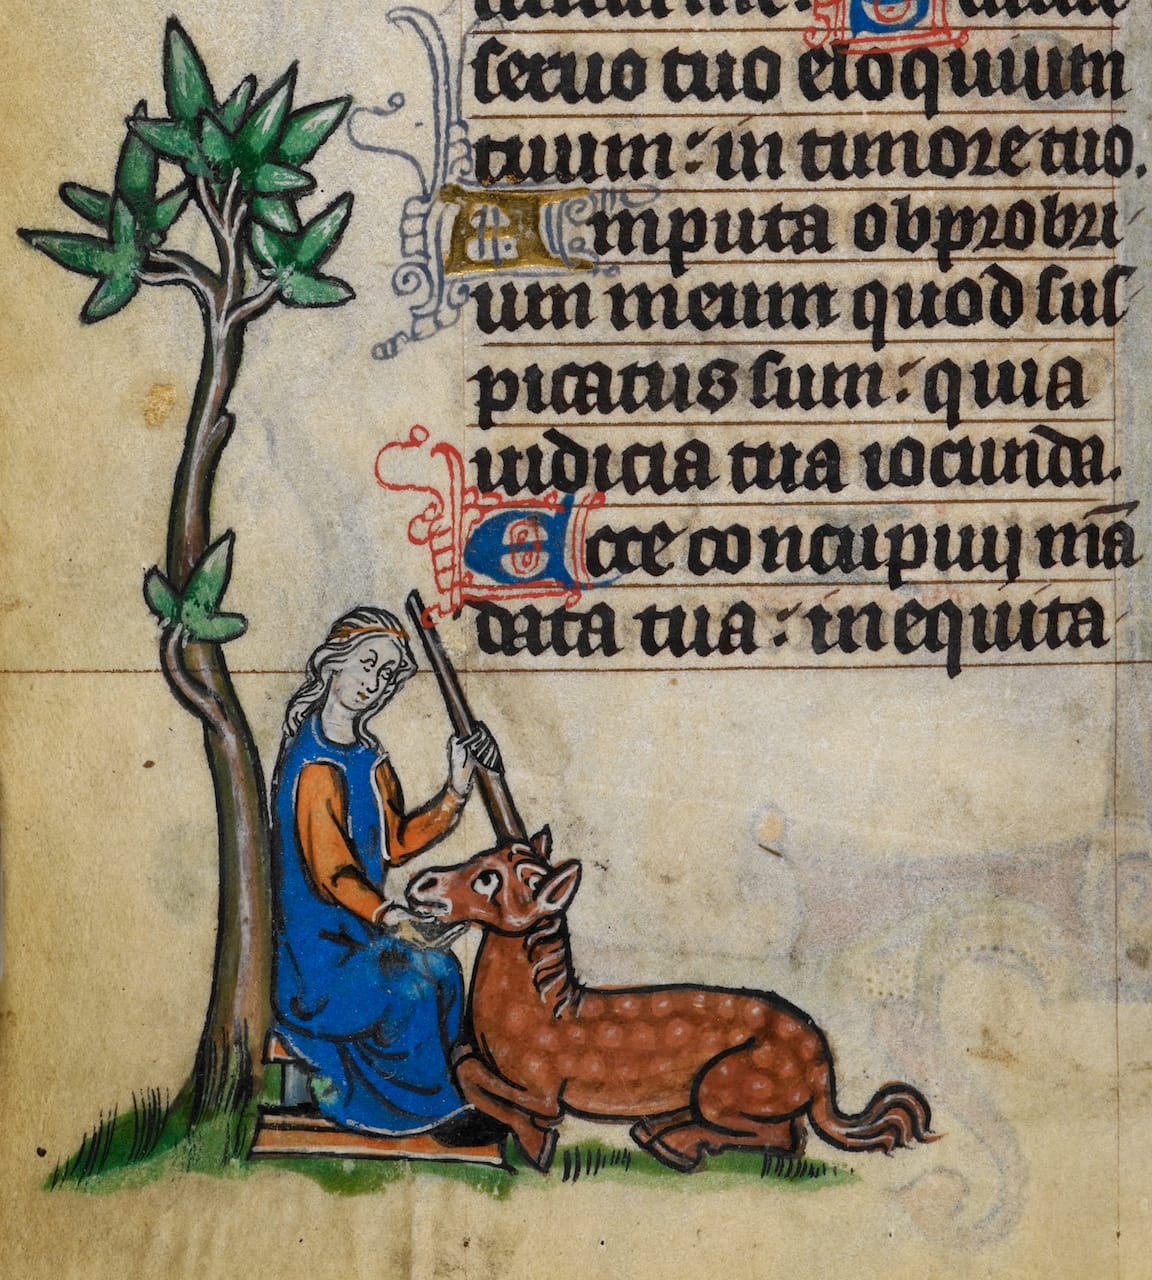 seruo tuo eloquium
tuum: in timore tuo.
Amputa obprobri
um meum quod sus
picatus sum: quia
iudicia tua iocunda.
Ecce concupiuij mā
data tua: in equita